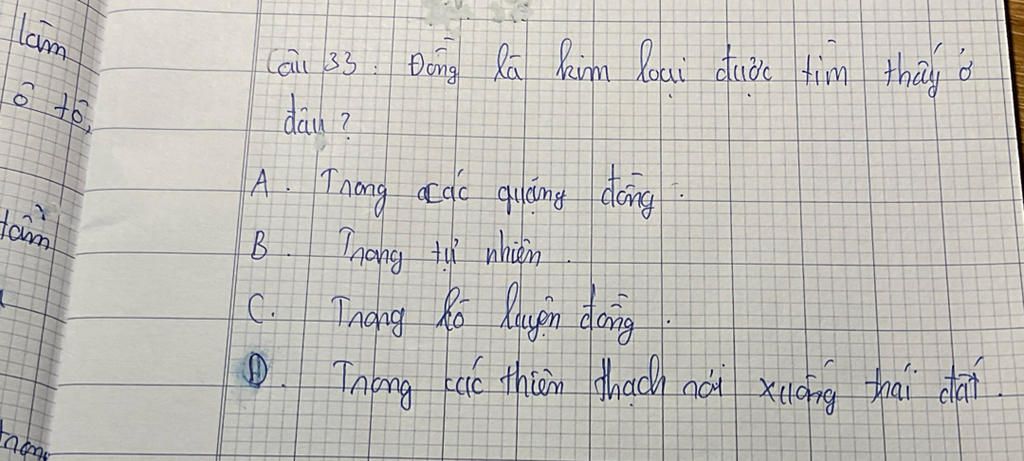 làm
ô tô,
tẩm
Câu 33: Đồng là kim loại được tìm thấy ở
đâu?
A. Trong các quặng đồng.
B. Trong tự nhiên.
C. Trong lò luyện đồng.
D. Trong các thiên thạch rơi xuống trái đất.